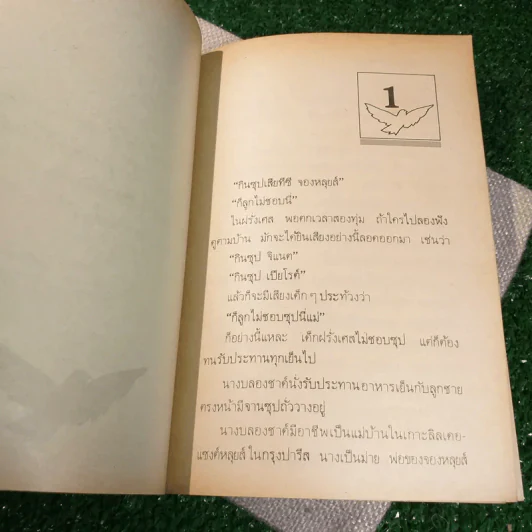 1
“กินซุปเสียทีซี จองหลุยส์”
“ก็ลูกไม่ชอบนี่”
ในฝรั่งเศส พอตกเวลาสองทุ่ม ถ้าใครไปลองฟัง
ดูตามบ้าน มักจะได้ยินเสียงอย่างนี้ลอดออกมา เช่นว่า
“กินซุป จิแนต”
“กินซุป เปียโรต์”
แล้วก็จะมีเสียงเด็ก ๆ ประท้วงว่า
“ก็ลูกไม่ชอบซุปนี่แม่”
ก็อย่างนี้แหละ เด็กฝรั่งเศสไม่ชอบซุป แต่ก็ต้อง
ทนรับประทานทุกเย็นไป
นางบลองชาต์นั่งรับประทานอาหารเย็นกับลูกชาย
ตรงหน้ามีจานซุปถั่ววางอยู่
นางบลองชาต์มีอาชีพเป็นแม่บ้านในเกาะลิลเดอ-
แซงต์หลุยส์ ในกรุงปารีส นางเป็นม่าย พ่อของจองหลุยส์